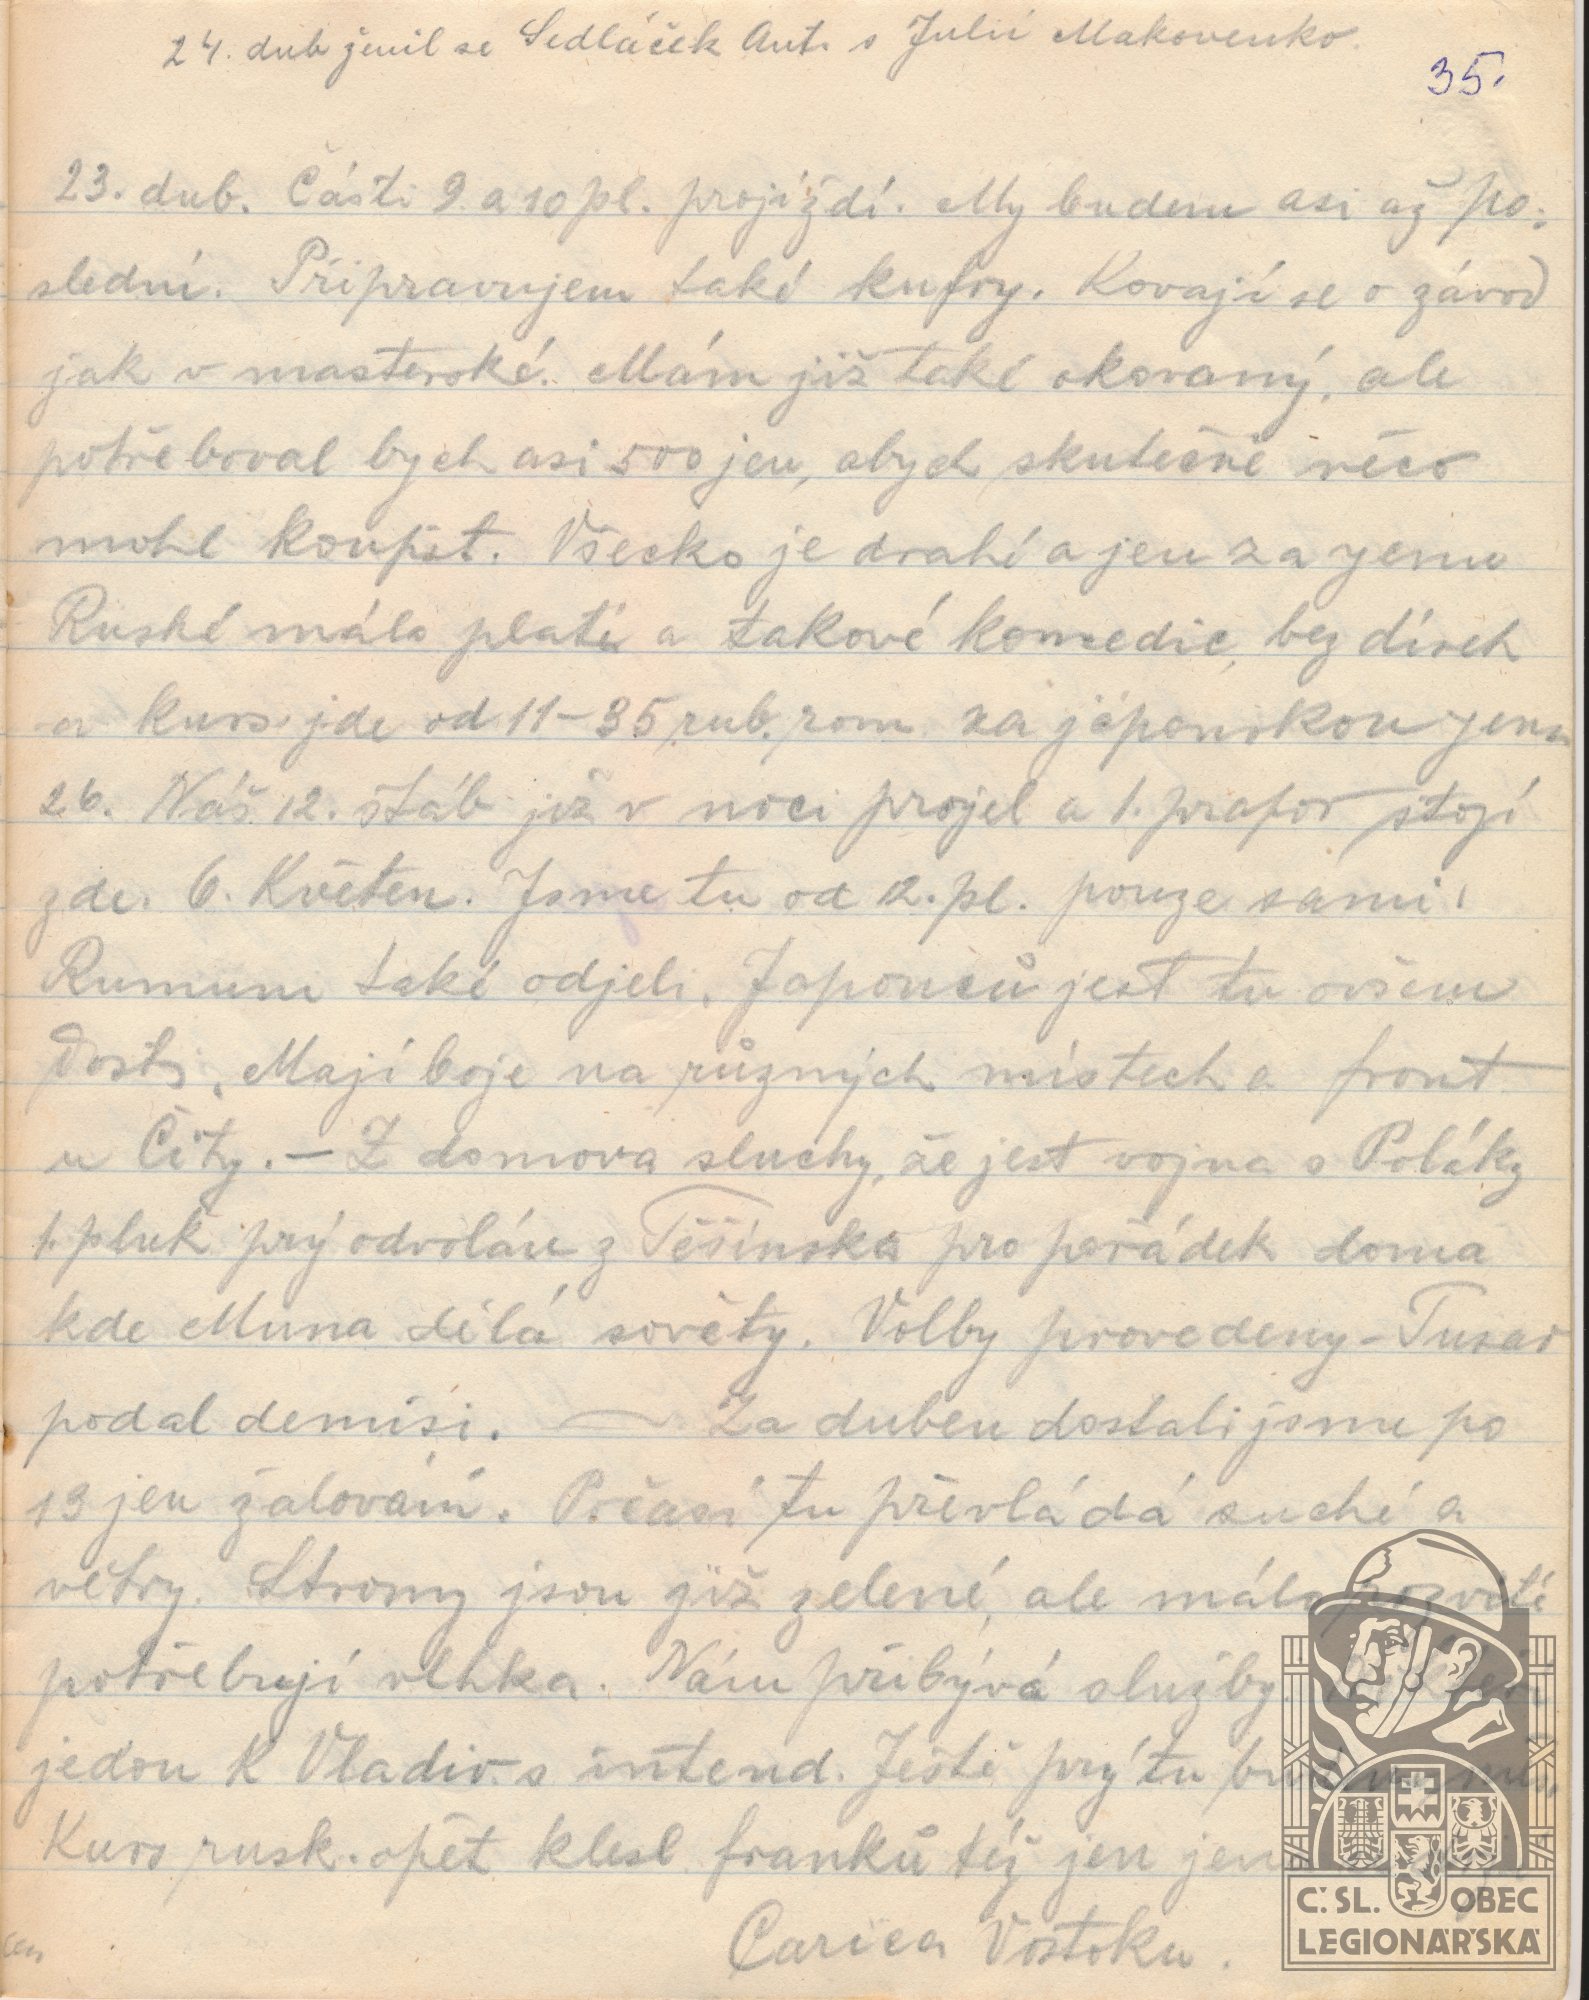 24. dub ženil se Sedláček Ant. s Julií Makovenko.
35.
23. dub. Části 9. a 10 pl. projíždí. My budem asi až po-
slední. Připravujem také kufry. Kovají se o závod
jak v masterské. Mám již také okovaný, ale
potřeboval bych asi 500 jen, abych skutečně něco
mohl koupit. Všecko je drahé a jen za yenu
Ruské málo platí a takové komedie, bez dírek
a kurs jde od 11-35 rub. rom za japonskou yenu
26. Náš 12. štáb již v noci projel a 1. prapor stojí
zde. 6. Květen. Jsme tu od 2. pl. pouze sami.
Rumuni také odjeli. Japonců jest tu ovšem
dosti. Mají boje na různých místech a front
u Čity. – Z domova sluchy, že jest vojna s Poláky
1. pluk prý odvolán z Těšínska pro pořádek doma
kde Muna dělá sověty. Volby provedeny - Tusar
podal demisi. — Za duben dostali jsme po
13 jen žalování. Počasí tu převládá suché a
větry. Stromy jsou již zelené, ale málo rozvité
potřebují vlhka. Nám přibývá služby.
jedou k Vladiv. s intend. Ještě prý tu
Kurs rusk. opět klesl franků též jen jen
Carica Vostoku.
C. SL. OBEC
LEGIONÁŘSKÁ